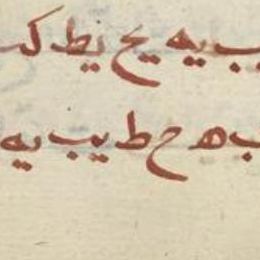 يه يح يط
ب ه ح ط يب يه